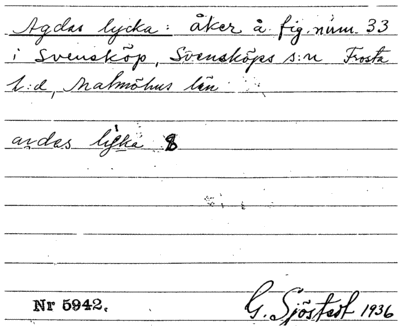 Agdas lycka: åker å fig. num. 33
i Svensköp, Svensköps s:n Frosta
h:d, Malmöhus län
lykka
Nr 5942.
G. Sjöstedt 1936